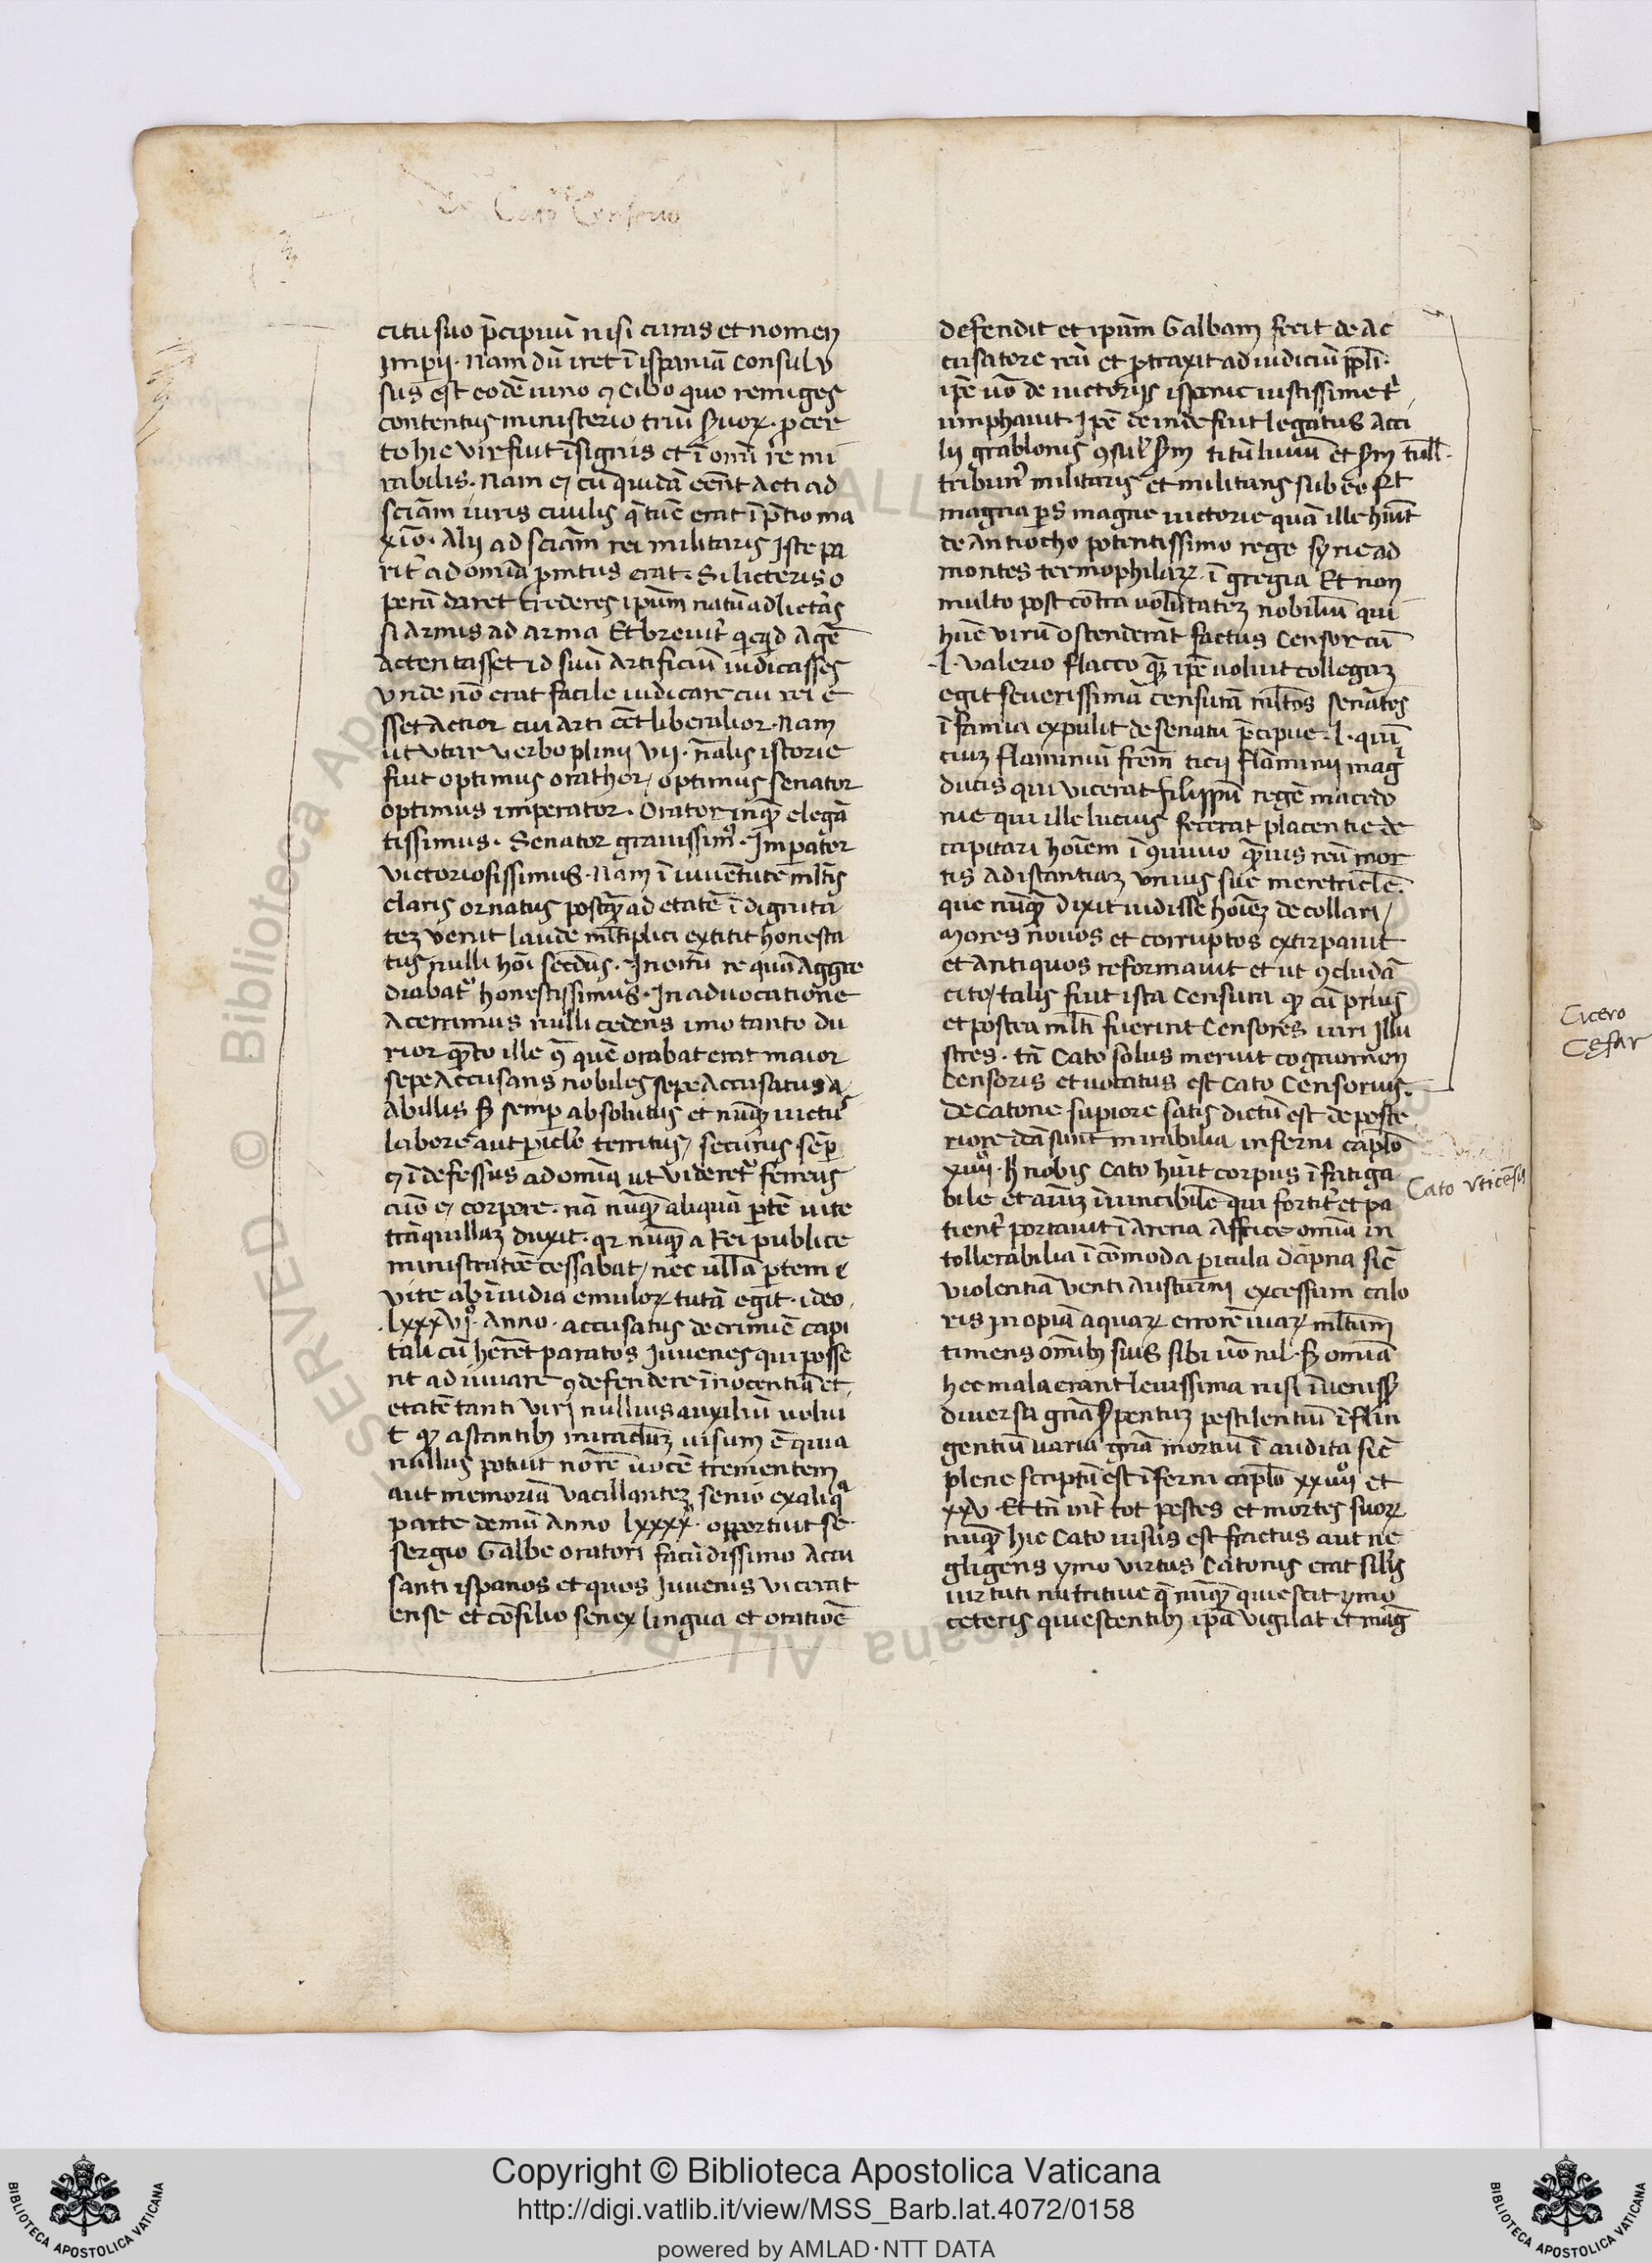 De Cato^ne Censorio
citu suo p̄cipuū nisi curas et nomen
Imp̄ij · Nam dū iret ī ispaniā Consul v
sus est eodē vino ⁊ Cibo quo remiges
contentus ministerio triū s̄uoꝝ · p cer
to hic vir fuit īsignis et ī om̄i re mi
rabilis · Nam ⁊ cū quidā eēnt Acti ad
sciām iuris ciuilis q̄ tūc erat ī p̄tio ma
xīo · Alij ad sciām rei militaris Iste pa
rit̓ ad omīa p̄mtus erat · Si licteris o
perā daret crederes ip̄um natū ad lictās
si Armis ad arma Et breuit̓ qicqid Agē
Actentasset id suū Artificiū iudicasses
Vnde nō erat facile iudicare cui rei e
sset Actior cui Arti eēt liberalior · Nam
ut vtar verbo plinij vij · n̄alis istorie
fuit optimus orathor / optimus senator
optimus imperator · Orator inqȝ elegā
tissimus · Senator grauissim̓ · Imperator
victoriosissimus · Nam ī iuuētute ml̄tis
claris ornatus postqȝ ad etatē ī dignita
teȝ venit laude ml̄tiplici extitit honesta
tus nulli hōi secd̄us · In om̄i re quā Aggre
diabat̓ honestissimus · In aduocatione
Acerrimus nulli cedens imo tanto du
rior qȝto ille ꝯ quē orabat erat maior
sepe Accusans nobiles sepe Accusatus A
Ab illis sȝ semp absolutus et nūqȝ victu᷒
labore aut picl̄o territus / securus sēp
⁊ ī defessus ad omīa ut videret̓ ferreus
aīo ⁊ corpore · nā nūqȝ aliquā ptē vite
tranquillaȝ duxit · qr nūqȝ a Rei publice
ministratōe cessabat / nec ullā ptem
vite ab īuidia emuloꝝ tutā egit · ideo
· lxxxvjº · Anno · accusatus de crimīe capi
tali cū hēret paratos Iuuenes qui posse
nt adiuuare ⁊ defendere īnocentiā et
etatē tanti viri nullius auxiliū volui
t qȝ astantibȝ miracl̄uȝ uisum ē quia
nullus potuit nōre uocē trementem
aut memoriā vacillanteȝ senio ex aliqa
parte demū Anno lxxxx · opportuit se
sergio Galbe oratori facūdissimo Accu
santi ispanos et quos Iuuenis vicerat
ense et cōsilio senex lingua et oratiōe
defendit et ip̄um Galbam fecit de Ac
cusatore reū et ptraxit ad iudiciū ppl̄i ·
ip̄e uō de victorijs ispanic iustissime t̓
umphauit · Ip̄e deinde fuit legatus Acci
lij grablonis ꝯsul̓ sm̄ titū liuiū et sm̄ tull̄ ·
tribun᷒ militaris et militans sub eo fit
magna ps magne victorie quā ille hūit
de Antiocho potentissimo rege syrie ad
montes termophilaꝝ · ī gregia Et non
multo post cōtra volūtateȝ nobiliū qui
hūc virū ostenderāt factus Censor cū
· l · valerio flacco quē ip̄e uoluit collegaȝ
egit seuerissimā censurā ml̄tos senātes
ī famia expulit de senatu p̄cipue · l · quī
ciuȝ flaminiū frēm ticij flaminij magⁱ
ducis qui vicerat filippū regē macedo
nie qui ille lucius fecerat placentie de
capitari hoīem ī ꝯuiuio prius reū mor
tis ad istantiaȝ vnius sue meretricl̄e ·
que nūqȝ dixit uidisse hoīeȝ decollari /
Mores nouos et corruptos extirpauit
et Antiquos reformauit et ut ꝯcludā
cito / talis fuit ista Censura qȝ cū prius
et postea ml̄ti fuerint Censores viri Illu
stres · tn̄ Cato solus meruit cognomen
Censoris et uocatus est Cato Censorius ·
De Catone supiore satis dictū est de poste
riore dcā sunt mirabilia inferni capl̄o
xiiijº · hȝ nobis Cato hūit corpus ī fatiga
bile et aīuȝ īuincibile qui fortit̓ et pa
tient̓ portauit ī Arena Affrice omīa in
tollerabilia ī cōmoda picula dāpna sic̄
violentiā venti Austurni excessum calo
ris Inopiā aquaꝝ errorē uiaꝝ ml̄tum
timens omībȝ suis sibi uō nil · sȝ omīa
hec mala erant leuissima nisi īuenissȝ
diuersa gn̄a s̄pentuȝ pestilentiū īflin
gentiū varia gn̄a mortiū ī audita sic̄
plene scriptū est īferni capl̄o xxiiijº et
xxv · Et tn̄ int̓ tot pestes et mortes suoꝝ
nūqȝ hic Cato uisus est fractus aut ne
gligens ymo virtus Catonis erat sil̄is
uirtuti nutritiue q̄ nūqȝ quiescit ymo
ceteris quiescentibȝ ip̄a vigilat et mag̓
Cato vticēsis
Cicero
Cesar
Copyright © Biblioteca Apostolica Vaticana
http://digi.vatlib.it/view/MSS_Barb.lat.4072/0158
powered by AMLAD·NTT DATA
BIBLIOTECA APOSTOLICA VATICANA
BIBLIOTECA APOSTOLICA VATICANA